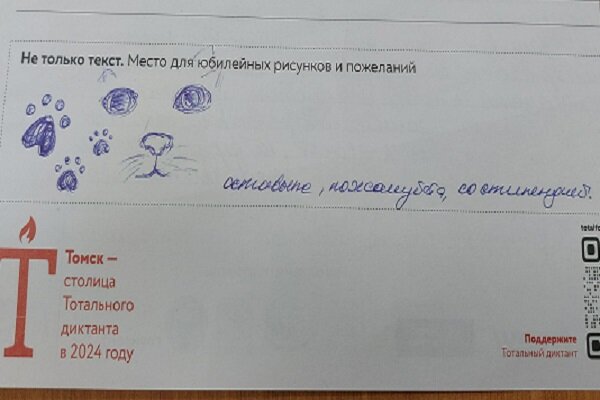 Не только текст. Место для юбилейных рисунков и пожеланий
оставьте, пожалуйста, со стипендией.
Т
Томск —
столица
Тотального
диктанта
в 2024 году
Поддержите
Тотальный диктант